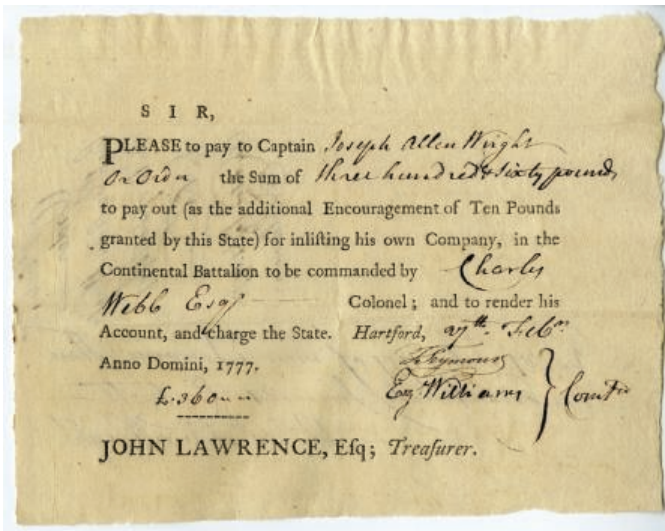 SIR,
PLEASE to pay to Captain Joseph Allen Wright
or Order the Sum of three hundred & sixty pounds
to pay out (as the additional Encouragement of Ten Pounds
granted by this State) for inliſting his own Company, in the
Continental Battalion to be commanded by Charles
Webb Esqr Colonel; and to render his
Account, and charge the State. Hartford, 27th Febr
Anno Domini, 1777. Seymour
£360 Williams Comtee
JOHN LAWRENCE, Eſq; Treaſurer.